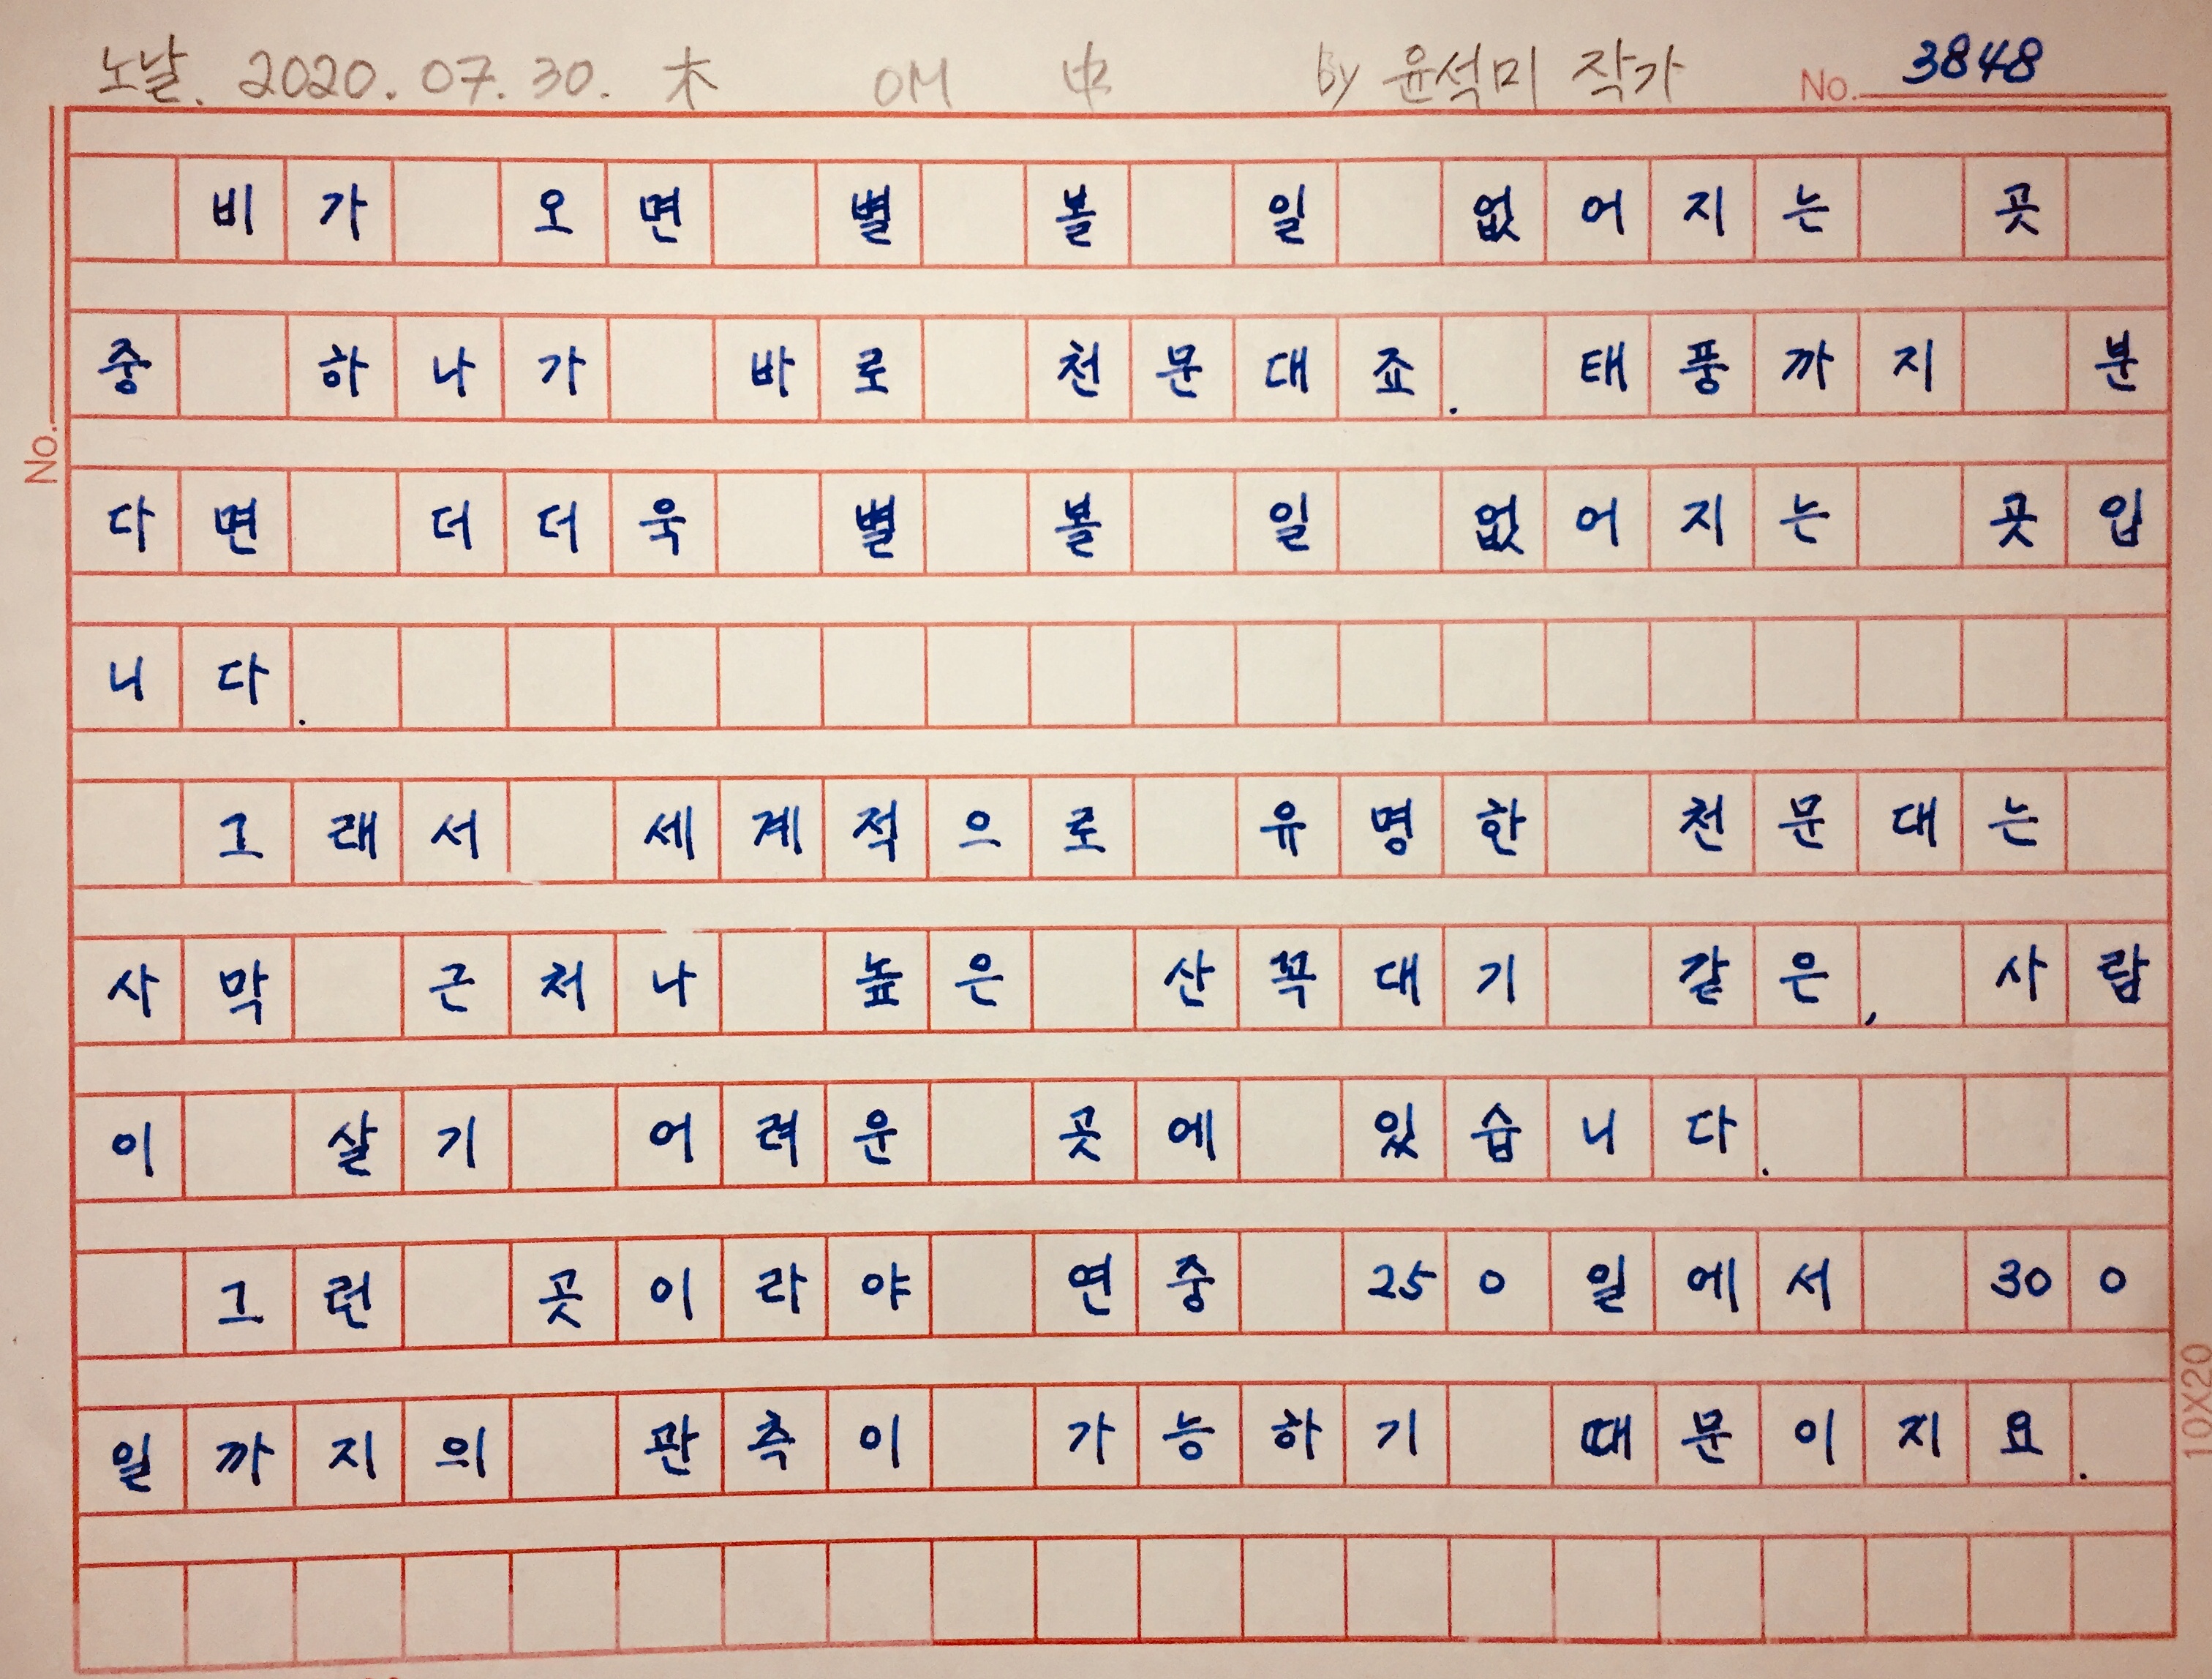 노날. 2020. 07. 30. 木 OM 中 by 윤석미 작가 No. 3848
비가 오면 별 볼 일 없어지는 곳
중 하나가 바로 천문대죠. 태풍까지 분
다면 더더욱 별 볼 일 없어지는 곳입
니다.
그래서 세계적으로 유명한 천문대는
사막 근처나 높은 산꼭대기 같은, 사람
이 살기 어려운 곳에 있습니다.
그런 곳이라야 연중 250일에서 300
일까지의 관측이 가능하기 때문이지요.
No.
10X20